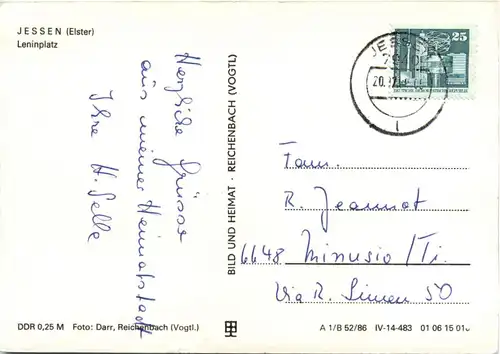 JESSEN (Elster)
Leninplatz
Herzliche Grüsse
aus meiner Heimatstadt
Ihre H. Selle
BILD UND HEIMAT · REICHENBACH (VOGTL)
JESSEN
25
DEUTSCHE DEMOKRATISCHE REPUBLIK
Fam.
R. Jeannot
6648 Minusio/Ti.
Via R. Simen 50
DDR 0,25 M Foto: Darr, Reichenbach (Vogtl.)
A 1/B 52/86 IV-14-483 01 06 15 018